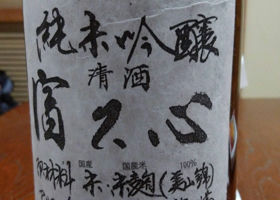 純米吟醸
清酒
富久心
原材料 国産 米・国産米 米麹(100% 美山錦)